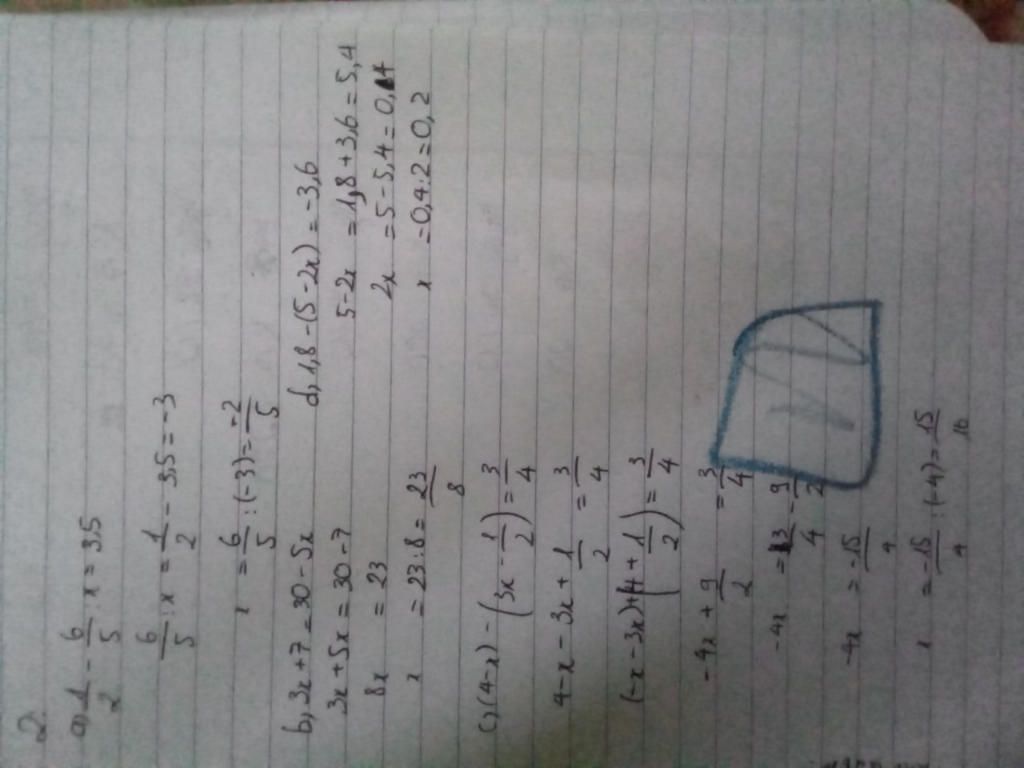 2.
a, 1/2 - 6/5 : x = 3,5
6/5 : x = 1/2 - 3,5 = -3
x = 6/5 : (-3) = -2/5
b, 3x + 7 = 30 - 5x
3x + 5x = 30 - 7
8x = 23
x = 23 : 8 = 23/8
c, (4 - x) - (3x - 1/2) = 3/4
4 - x - 3x + 1/2 = 3/4
(-x - 3x) + (4 + 1/2) = 3/4
-4x + 9/2 = 3/4
-4x = 3/4 - 9/2
-4x = -15/4
x = -15/4 : (-4) = 15/16
d, 1,8 - (5 - 2x) = -3,6
5 - 2x = 1,8 + 3,6 = 5,4
2x = 5 - 5,4 = 0,4
x = 0,4 : 2 = 0,2